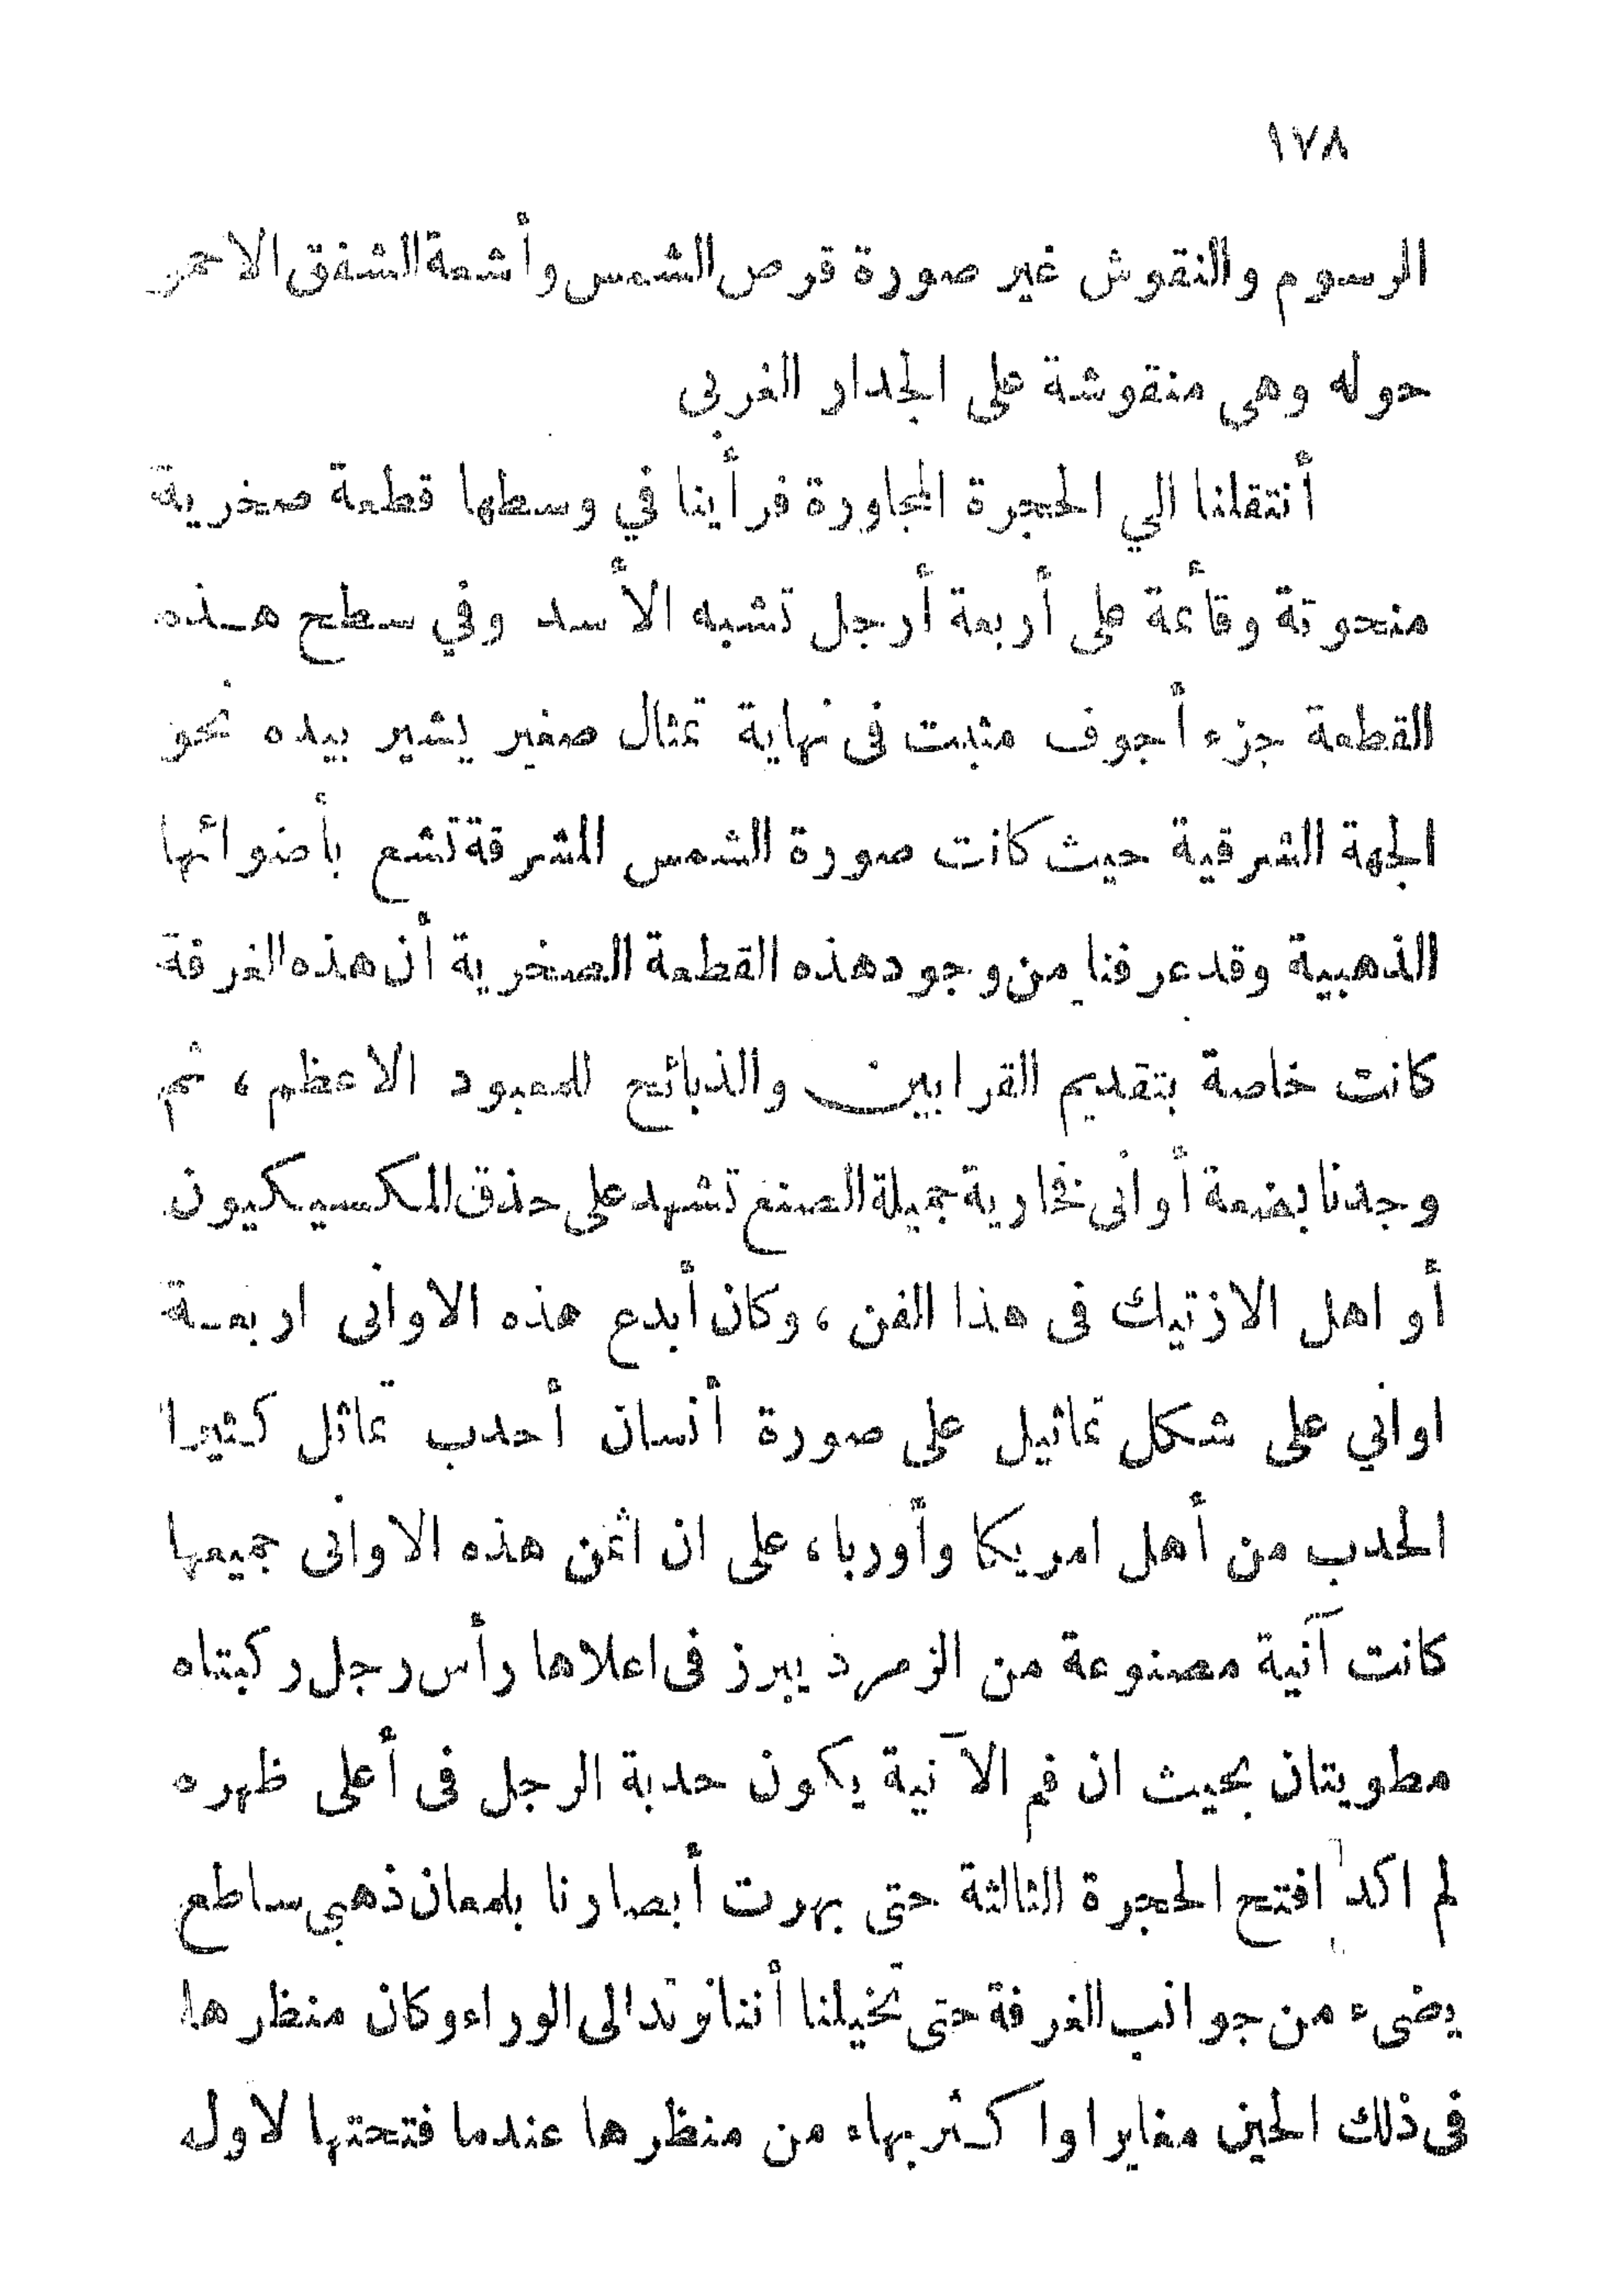 ١٧٨
الرسوم والنقوش غير صورة قرص الشمس وأشعة الشفق الاحمر
حوله وهى منقوشة على الجدار الغربى
أنتقلنا الي الحجرة المجاورة فرأينا في وسطها قطعة صخرية
منحوتة وقأئمة على أربعة أرجل تشبه الأسد وفي سطح هـذه
القطعة جزء أجوف مثبت فى نهاية تمثال صغير يشير بيده نحو
الجهة الشرقية حيث كانت صورة الشمس المشرقة تشع بأضوائها
الذهبية وقد عرفنا من وجود هذه القطعة الصخرية أن هذه الغرفة
كانت خاصة بتقديم القرابين والذبائح للمعبود الاعظم ، ثم
وجدنا بضعة أوانى فخارية جميلة الصنع تشهد على حذق المكسيكيون
أو اهل الازتيك فى هذا الفن ، وكان أبدع هذه الاوانى اربعـة
اواني على شكل تماثيل على صورة أنسان أحدب تماثل كثيرا
الحدب من أهل امريكا وأوربا ، على ان اثمن هذه الاوانى جميعها
كانت آنية مصنوعة من الزمرد يبرز فى اعلاها رأس رجل ركبتاه
مطويتان بحيث ان فم الآنية يكون حدبة الرجل فى أعلى ظهره
لم اكد افتح الحجرة الثالثة حتى بهرت أبصارنا بلمعان ذهبي ساطع
يضىء من جوانب الغرفة حتى تخيلنا أننا نرتد الى الوراء وكان منظرها
فى ذلك الحين مغايرا واكثر بهاء من منظرها عندما فتحتها لاول